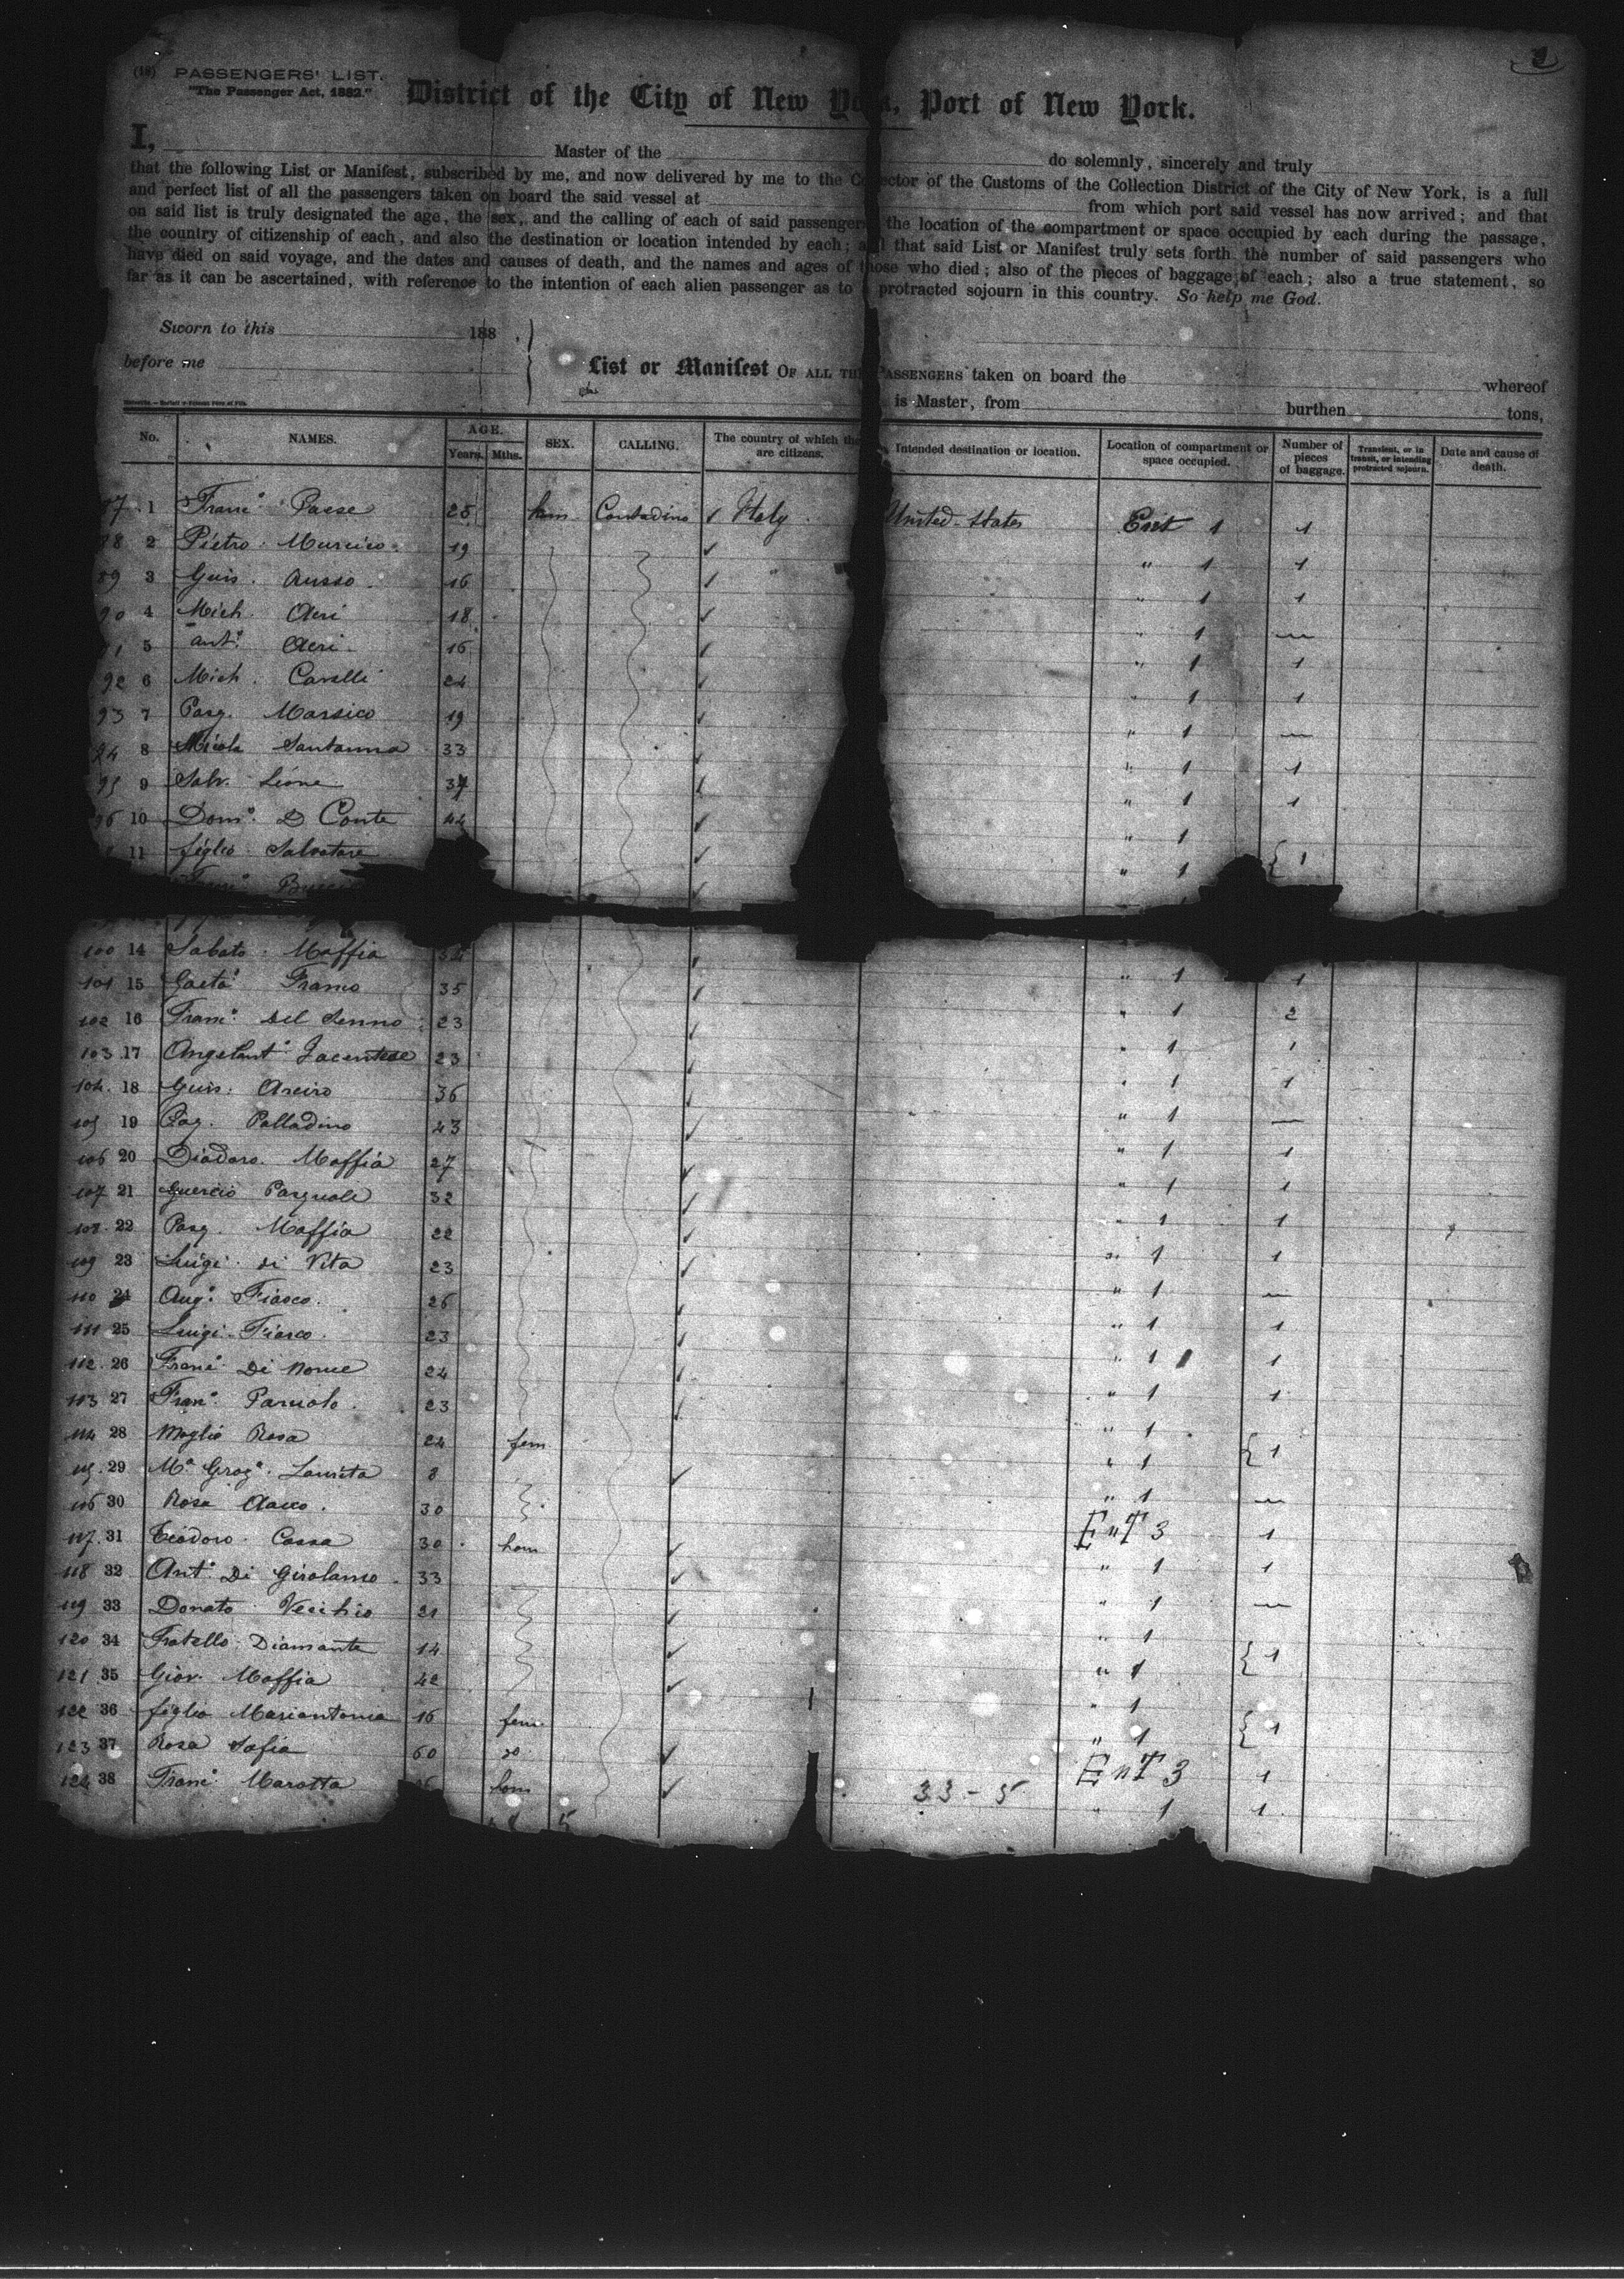 (18) PASSENGERS' LIST.
"The Passenger Act, 1882."
District of the City of New York, Port of New York.
I, Master of the do solemnly, sincerely and truly
that the following List or Manifest, subscribed by me, and now delivered by me to the Collector of the Customs of the Collection District of the City of New York, is a full
and perfect list of all the passengers taken on board the said vessel at from which port said vessel has now arrived; and that
on said list is truly designated the age, the sex, and the calling of each of said passengers the location of the compartment or space occupied by each during the passage,
the country of citizenship of each, and also the destination or location intended by each; and that said List or Manifest truly sets forth the number of said passengers who
have died on said voyage, and the dates and causes of death, and the names and ages of those who died; also of the pieces of baggage of each; also a true statement, so
far as it can be ascertained, with reference to the intention of each alien passenger as to protracted sojourn in this country. So help me God.
Sworn to this 188 .
before me
List or Manifest OF ALL THE PASSENGERS taken on board the whereof
is Master, from burthen tons,
No. NAMES. AGE. Years. Mths. SEX. CALLING. The country of which the are citizens. Intended destination or location. Location of compartment or space occupied. Number of pieces of baggage. Transient, or in transit, or intending protracted sojourn. Date and cause of death.
1 Franc° Passe 25 hom Contadino Italy United States 1 1
88 2 Pietro Murcico 19 " 1 1
89 3 Guis. Russo 16 " 1 1
90 4 Mich. Acri 18 " 1 —
91 5 Ant° Acri 16 " 1 1
92 6 Mich. Cavelli 24 " 1 1
93 7 Pasq. Marsico 19 " 1 —
94 8 Nicola Santanna 33 " 1 1
95 9 Salv. Leone 37 " 1 1
96 10 Dom° D Conte 44 " 1
11 figlio Salvatore " 1 { 1
100 14 Sabato Maffia 34 " 1 1
101 15 Gaeta° Franco 35 " 1 2
102 16 Franc° Del Senno 23 " 1 1
103 17 Angelant° 23 " 1 1
104 18 Guis. Arciro 36 " 1 —
105 19 Pasq. Palladino 43 " 1 1
106 20 Diodoro Maffia 27 " 1 1
107 21 Guercio Pasquale 32 " 1 1
108 22 Pasq. Maffia 22 " 1 1
109 23 Luigi di Vita 23 " 1 —
110 24 Ang° Fiasco 26 " 1 1
111 25 Luigi Fiasco 23 " 1 1
112 26 Franc° Di Nome 24 " 1 1
113 27 Franc° Paruolo 23 " 1
114 28 Moglie Rosa 24 fem " 1 { 1
115 29 Mª Graz° Laurita 8 " 1 —
116 30 Rosa 30 EnT 3 1
117 31 Teodoro Cassa 30 hom " 1 1
118 32 Ant° Di Girolamo 33 " 1 —
119 33 Donato Vecchio 21 " 1
120 34 Fratello Diamante 14 " 1 { 1
121 35 Giov. Maffia 42 " 1
122 36 figlia Mariantonia 16 fem " 1 { 1
123 37 Rosa Sofia 60 do EnT 3 1
124 38 Franc° Marotta hom " 1 1
33 - 5